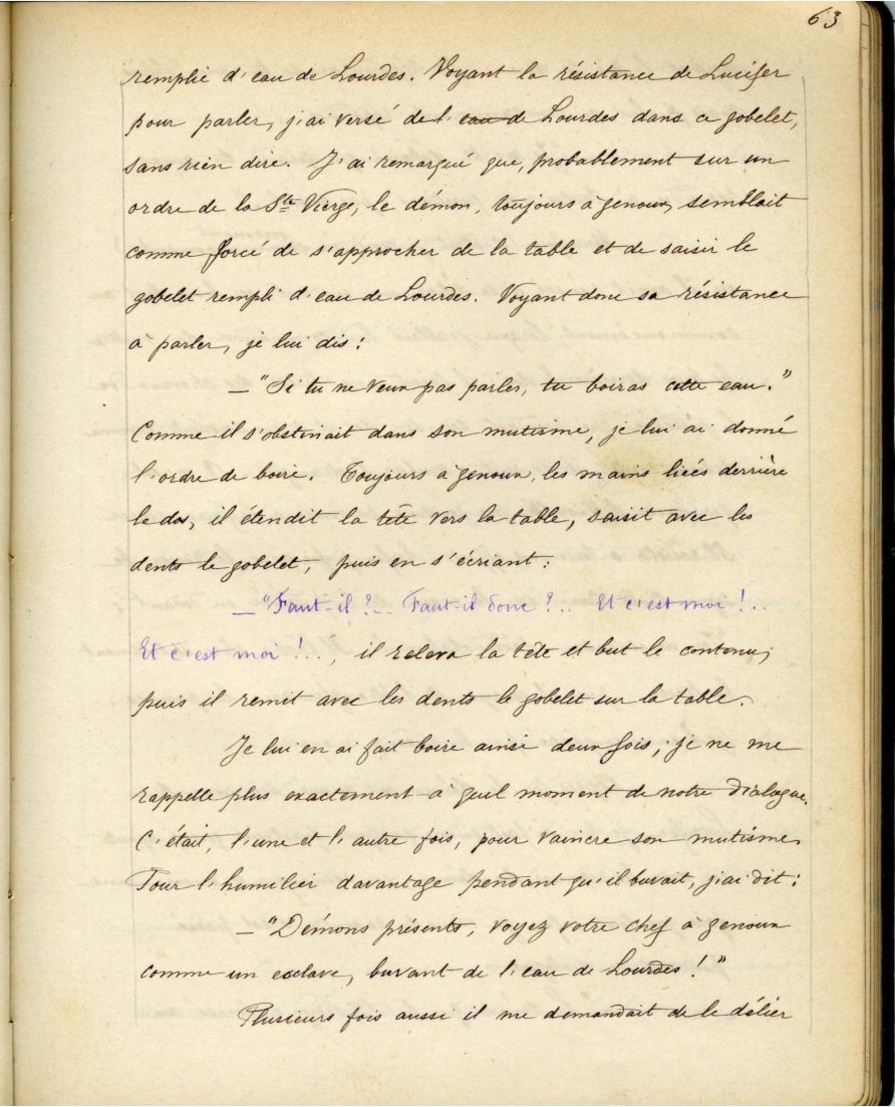 63
remplie d'eau de Lourdes. Voyant la résistance de Lucifer
pour parler, j'ai versé de l'eau de Lourdes dans ce gobelet,
sans rien dire. J'ai remarqué que, probablement sur un
ordre de la Ste Vierge, le démon, toujours à genoux, semblait
comme forcé de s'approcher de la table et de saisir le
gobelet rempli d'eau de Lourdes. Voyant donc sa résistance
à parler, je lui dis :
— "Si tu ne veux pas parler, tu boiras cette eau."
Comme il s'obstinait dans son mutisme, je lui ai donné
l'ordre de boire. Toujours à genoux, les mains liées derrière
le dos, il étendit la tête vers la table, saisit avec les
dents le gobelet, puis en s'écriant :
— "Faut-il ?.. Faut-il donc ?.. Et c'est moi !..
Et c'est moi !.., il releva la tête et but le contenu;
puis il remit avec les dents le gobelet sur la table.
Je lui en ai fait boire ainsi deux fois ; je ne me
rappelle plus exactement à quel moment de notre dialogue.
C'était, l'une et l'autre fois, pour vaincre son mutisme.
Pour l'humilier davantage pendant qu'il buvait, j'ai dit :
— "Démons présents, voyez votre chef à genoux
comme un esclave, buvant de l'eau de Lourdes !"
Plusieurs fois aussi il me demandait de le délier